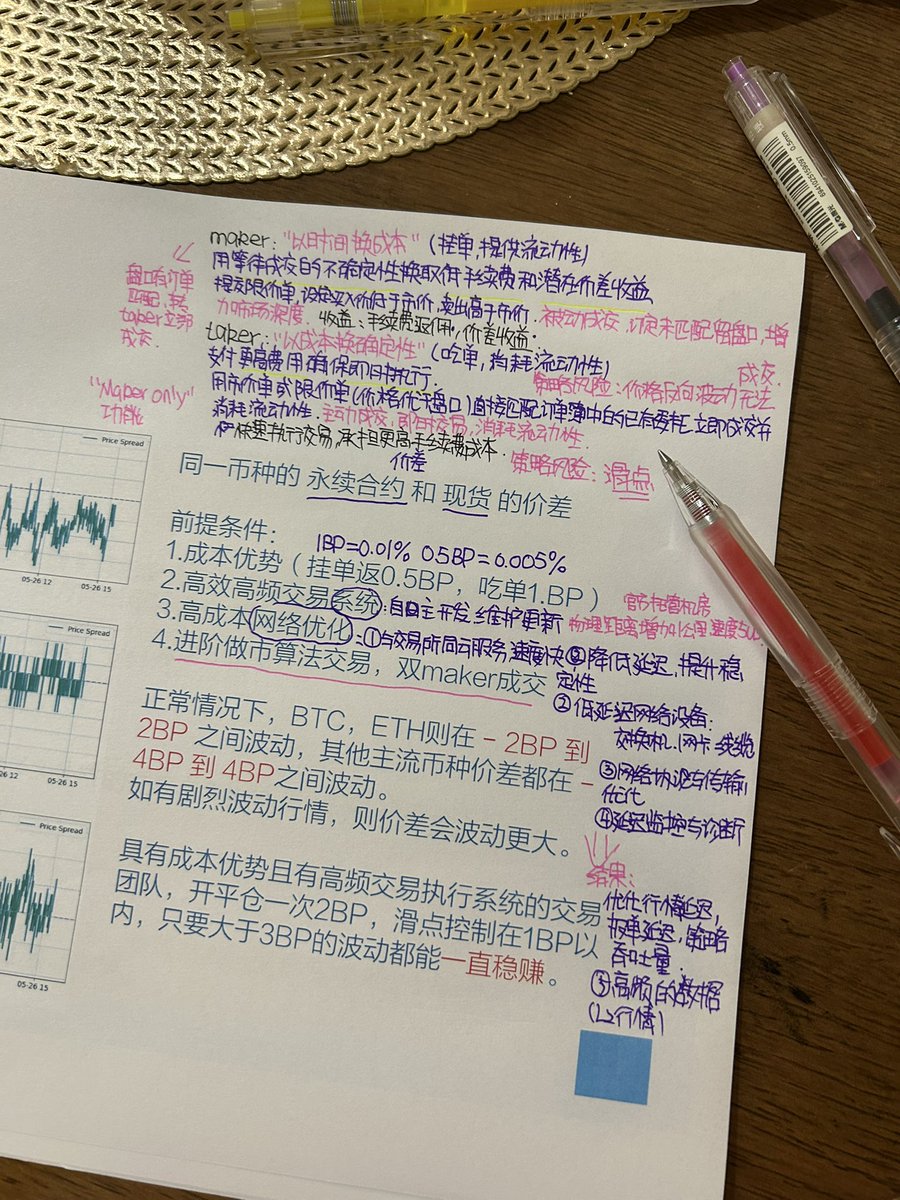 maker："以时间换成本"（挂单，提供流动性）
用等待成交的不确定性换取低手续费和潜在价差收益
提交限价单，设定买入价低于市价，卖出高于市价．被动成交，订单未匹配留盘口，增
加市场深度．收益：手续费返佣，价差收益．
盘口有订单
匹配，转
taker立即
成交．
taker："以成本换确定性"（吃单，消耗流动性）
支付更高费用确保即时执行．
策略风险：价格反向波动无法
成交．
用市价单或限价单（价格优于盘口）直接匹配订单簿中的已有委托，立即成交并
消耗流动性．主动成交，即时交易，消耗流动性．
快速执行交易，承担更高手续费成本．
价差
策略风险：滑点
"Maker only"
功能
同一币种的 永续合约 和 现货 的价差
前提条件：
1BP=0.01% 0.5BP=0.005%
1.成本优势（挂单返0.5BP，吃单1.BP）
2.高效高频交易系统
：自主开发，维护更新
官方托管机房
3.高成本网络优化
：①与交易所同云服务，速度快
降低延迟，提升稳
定性
4.进阶做市算法交易，双maker成交
②低延迟网络设备．
交换机、网卡、线缆
③网络协议与传输
优化
④延迟监控与诊断
结果：
优化行情延迟，
报单延迟，策略
吞吐量．
⑤高频的数据
（L2行情）
正常情况下，BTC，ETH则在 - 2BP 到
2BP 之间波动，其他主流币种价差都在 -
4BP 到 4BP之间波动。
如有剧烈波动行情，则价差会波动更大。
具有成本优势且有高频交易执行系统的交易
团队，开平仓一次2BP，滑点控制在1BP以
内，只要大于3BP的波动都能一直稳赚。
Price Spread
05-26 12
05-26 15
Price Spread
05-26 15
Price Spread
05-26 15
M&G晨光
0.5mm